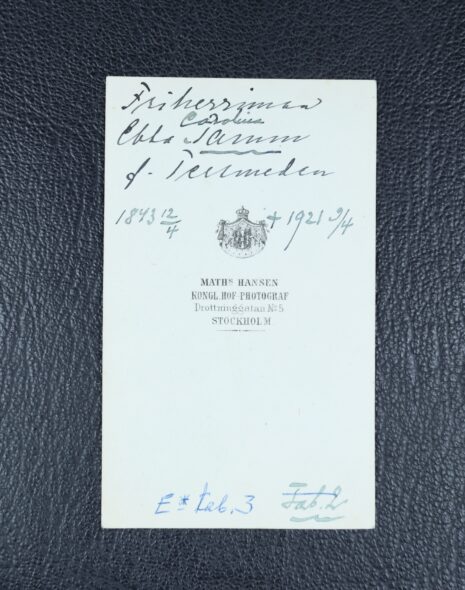 Friherrinnan
Carolina
Ebba Tamm
f. Tersmeden
1843 12/4 + 1921 9/4
MATHS HANSEN
KONGL. HOF-PHOTOGRAF
Drottninggatan No 5
STOCKHOLM
E* tab. 3 Tab. 2